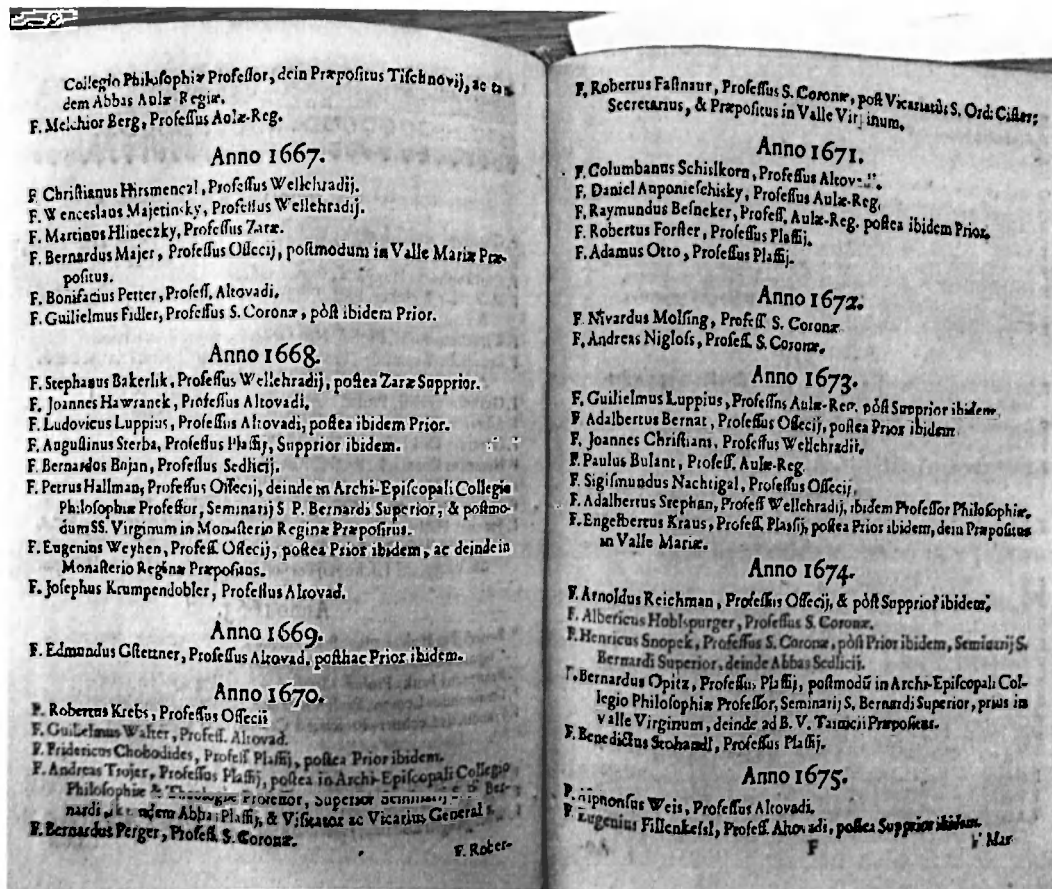 Collegio Philosophiæ Professor, dein Præpositus Tischnovij, ac tan-
dem Abbas Aulæ Regiæ.
F. Melchior Berg, Professus Aulæ-Reg.
Anno 1667.
F. Christianus Hirsmenczl, Professus Wellehradij.
F. Wenceslaus Majetinsky, Professus Wellehradij.
F. Martinus Hlineczky, Professus Zaræ.
F. Bernardus Majer, Professus Ossecij, postmodum in Valle Mariæ Præ-
positus.
F. Bonifacius Petter, Profess. Altovadi.
F. Guilielmus Fidler, Professus S. Coronæ, pòst ibidem Prior.
Anno 1668.
F. Stephanus Bakerlik, Professus Wellehradij, postea Zaræ Supprior.
F. Joannes Hawranek, Professus Altovadi.
F. Ludovicus Luppius, Professus Altovadi, postea ibidem Prior.
F. Augustinus Sterba, Professus Plassij, Supprior ibidem.
F. Bernardos Bojan, Professus Sedlicij.
F. Petrus Hallman, Professus Ossecij, deinde in Archi-Episcopali Collegio
Philosophiæ Professor, Seminarij S. P. Bernardi Superior, & postmo-
dum SS. Virginum in Monasterio Reginæ Præpositus.
F. Eugenius Weyhen, Profess. Ossecij, postea Prior ibidem, ac deinde in
Monasterio Reginæ Præpositus.
F. Josephus Krumpendobler, Professus Altovad.
Anno 1669.
F. Edmundus Gstettner, Professus Altovad. posthac Prior ibidem.
Anno 1670.
F. Robertus Krebs, Professus Ossecij
F. Guilielmus Walter, Profess. Altovad.
F. Fridericus Chobodides, Profess. Plassij, postea Prior ibidem.
F. Andreas Trojer, Professus Plassij, postea in Archi-Episcopali Collegio
Philosophiæ & Theologiæ Professor, Superior Seminarij Ber-
nardi Abbas Plassij, & Visitator ac Vicarius General
F. Bernardus Perger, Profess. S. Coronæ.
F. Rober-
F. Robertus Fastnaur, Professus S. Coronæ, post Vicariatûs S. Ord: Cister:
Secretarius, & Præpositus in Valle Virginum.
Anno 1671.
F. Columbanus Schislkorn, Professus
F. Daniel Anponieschisky, Professus Aulæ-Reg.
F. Raymundus Besneker, Profess. Aulæ-Reg. postea ibidem Prior.
F. Robertus Forster, Professus Plassij.
F. Adamus Otto, Professus Plassij.
Anno 1672.
F. Nivardus Molsing, Profess. S. Coronæ
F. Andreas Niglofs, Profess. S. Coronæ.
Anno 1673.
F. Guilielmus Luppius, Professus Aulæ-Reg. pòst Supprior ibidem.
F Adalbertus Bernat, Professus Ossecij, postea Prior ibidem
F. Joannes Christiani, Professus Wellehradij.
F. Paulus Bulant, Profess. Aulæ-Reg.
F. Sigismundus Nachtigal, Professus Ossecij,
F. Adalbertus Stephan, Profess Wellehradij, ibidem Professor Philosophiæ.
F. Engelbertus Kraus, Profess. Plassij, postea Prior ibidem, dein Præpositus
in Valle Mariæ.
Anno 1674.
F. Arnoldus Reichman, Professus Ossecij, & pòst Supprior ibidem.
F. Albericus Hoblspurger, Professus S. Coronæ.
F. Henricus Snopek, Professus S. Coronæ, pòst Prior ibidem, Seminarij S.
Bernardi Superior, deinde Abbas Sedlicij.
F. Bernardus Opitz, Professus Plassij, postmodū in Archi-Episcopali Col-
legio Philosophiæ Professor, Seminarij S. Bernardi Superior, prius in
Valle Virginum, deinde ad B. V. Præpositus.
F. Benedictus Stohandl, Professus Plassij.
Anno 1675.
Weis, Professus Altovadi.
F. Eugenius Fissenkessl, Profess. Altovadi, postea Supprior ibidem.
F
F Mar